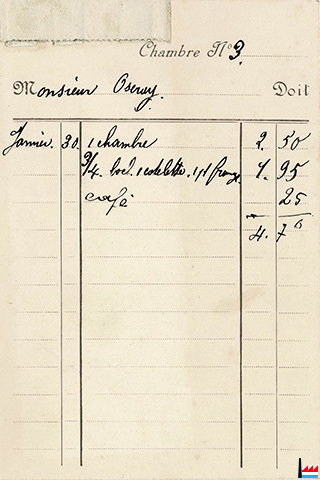 Chambre N° 3.
Monsieur Doit
Janvier. 30. 1 chambre 2. 50
3/4. 1 cotelette. 1. 95
café 25
4. 70